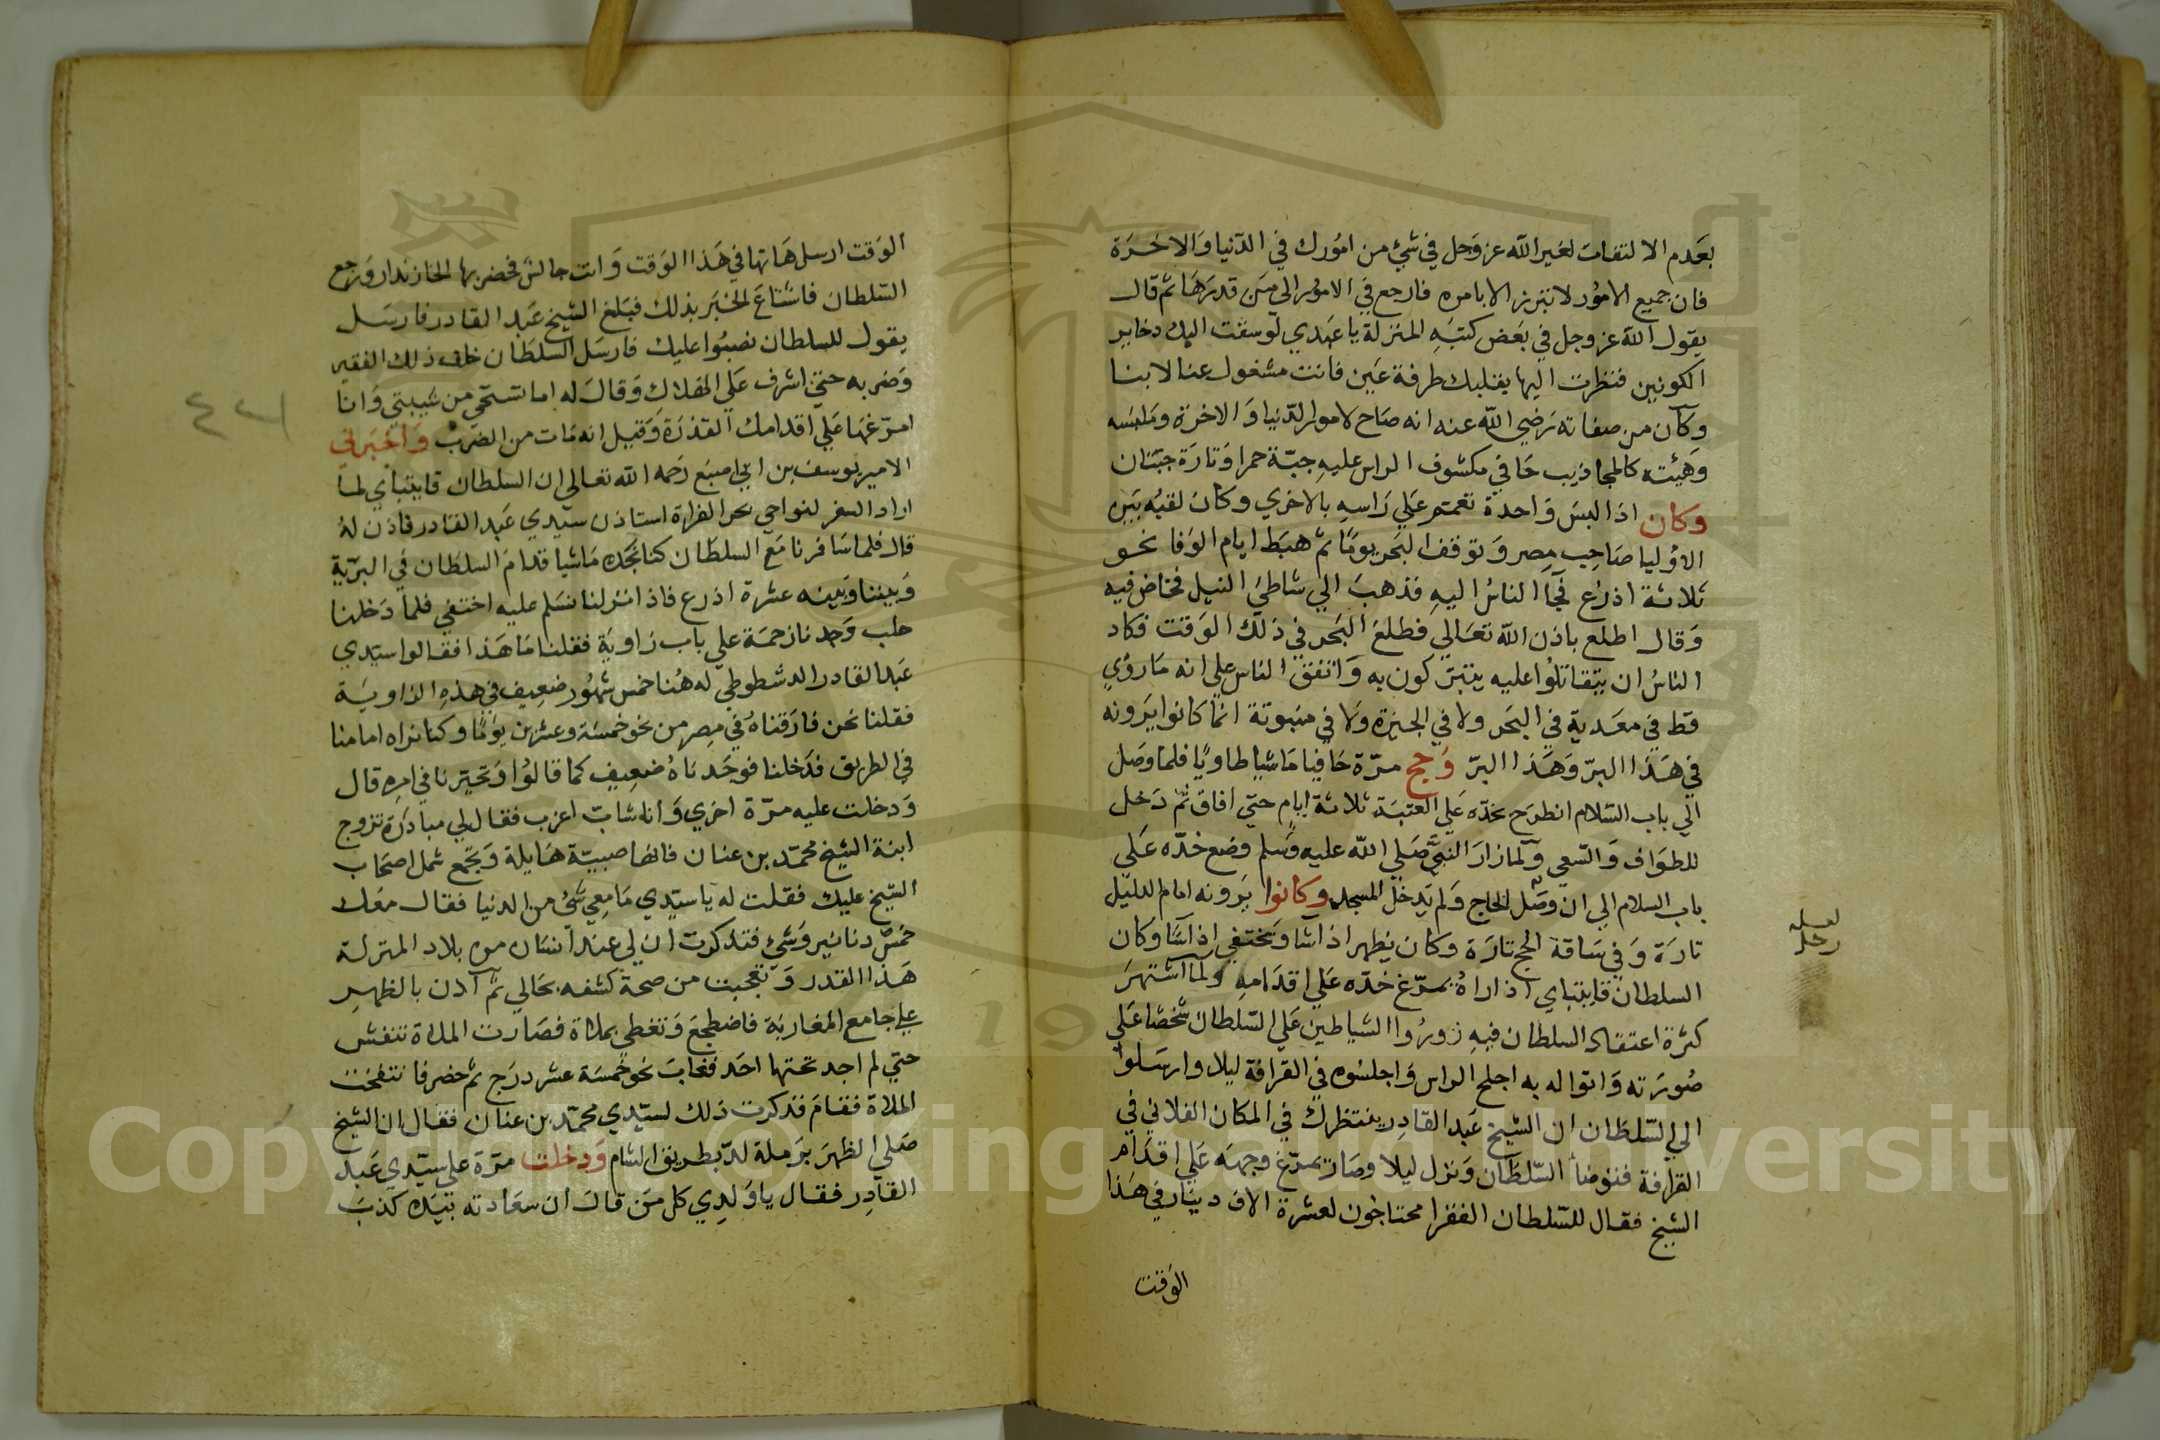 بعدم الالتفات لغير الله عز وجل في شئ من امورك في الدنيا والاخرة
فان جميع الامور لا تبرز الا بامره فارجع في الامور الي من قدرها ثم قال
يقول الله عز وجل في بعض كتبه المنزلة يا عبدي لو سقت اليك دخاير
الكونين فنظرت اليها بقلبك طرفة عين فانت مشغول عنا لا بنا
وكان من صفاته رضي الله عنه انه صاح لامور الدنيا والاخرة وملبسه
وهيئته كالمجاذيب حافي مكشوف الراس عليه جبة حمرا وتارة جبتان
وكان اذا لبس واحدة تعمم علي راسه بالاخري وكان لقبه بين
الاوليا صاحب مصر وتوقف البحر يوما ثم هبط ايام الوفا نحو
ثلاثة اذرع فجا الناس اليه فذهب الي شاطئ النيل فخاض فيه
وقال اطلع باذن الله تعالي فطلع البحر في ذلك الوقت فكاد
الناس ان يتقاتلوا عليه يتبركون به واتفق الناس علي انه ما رؤي
قط في معدية في البحر ولا في الجيزة ولا في منبوتة انما كانوا يرونه
في هذا البر وهذا البر وحج مرة حافيا ماشيا طاويا فلما وصل
الي باب السلام انطرح بخده علي العتبة ثلاثة ايام حتي افاق ثم دخل
للطواف والسعي ولما زار النبي صلي الله عليه وسلم وضع خده علي
باب السلام الي ان وصل الحاج ولم يدخل المسجد وكانوا يرونه امام الدليل
تارة وفي ساقة الحج تارة وكان يظهر اذا شا ويختفي اذا شا وكان
السلطان قايتباي اذا راه يمرغ خده علي اقدامه ولما اشتهر
كثرة اعتقاد السلطان فيه زوروا الشياطين علي السلطان شخصا علي
صورته واتوا له به اجلح الراس واجلسوه في القرافة ليلا وارسلوا
الي السلطان ان الشيخ عبد القادر ينتظرك في المكان الفلاني في
القرافة فتوضا السلطان ونزل ليلا وصار يمرغ وجهه علي اقدام
الشيخ فقال للسلطان الفقرا محتاجون لعشرة الاف دينار في هذا
الوقت
لعله
رجل
الوقت ارسل هاتها في هذا الوقت وانت جالس فحضر بها الخازندار ورجع
السلطان فاشتاع الخبر بذلك فبلغ الشيخ عبد القادر فارسل
يقول للسلطان نصبوا عليك فارسل السلطان خلف ذلك الفقير
وضربه حتي اشرف علي الهلاك وقال له اما تستحي من شيبتي وانا
امرغها علي اقدامك القذرة وقيل انه مات من الضرب واخبرني
الامير يوسف بن ابي اصبع رحمه الله تعالي ان السلطان قايتباي لما
اراد السفر لنواحي بحر الفراة استاذن سيدي عبد القادر فاذن له
قال فلما سافرنا مع السلطان كنا نجده ماشيا قدام السلطان في البرية
وبيننا وبينه عشرة اذرع فاذا نزلنا نسلم عليه اختفي فلما دخلنا
حلب وجدنا زحمة علي باب زاوية فقلنا ما هذا فقالوا سيدي
عبد القادر الدشطوطي له هنا خمس شهور ضعيف في هذه الزاوية
فقلنا نحن فارقناه في مصر من نحو خمسة وعشرين يوما وكنا نراه امامنا
في الطريق فدخلنا فوجدناه ضعيف كما قالوا وتحيرنا في امره قال
ودخلت عليه مرة اخري وانا شاب اعزب فقال لي مبادرة تزوج
ابنة الشيخ محمد بن عنان فانها صبية هايلة وتجمع شمل اصحاب
الشيخ عليك فقلت له يا سيدي ما معي شئ من الدنيا فقال معك
خمس دنانير وشئ فتذكرت ان لي عند انسان من بلاد المنزلة
هذا القدر وتعجبت من صحة كشفه بحالي ثم اذن بالظهر
علي جامع المغاربة فاضطجع وتغطي بملاة فصارت الملاة تنفش
حتي لم اجد تحتها احد فغاب نحو خمسة عشر درج ثم حضر فانتفخت
الملاة فقام فذكرت ذلك لسيدي محمد بن عنان فقال ان الشيخ
صلي الظهر برملة لد بطريق الشام ودخلت مرة علي سيدي عبد
القادر فقال يا ولدي كل من قال ان سعادته بيده كذب
Copyright © King Saud University